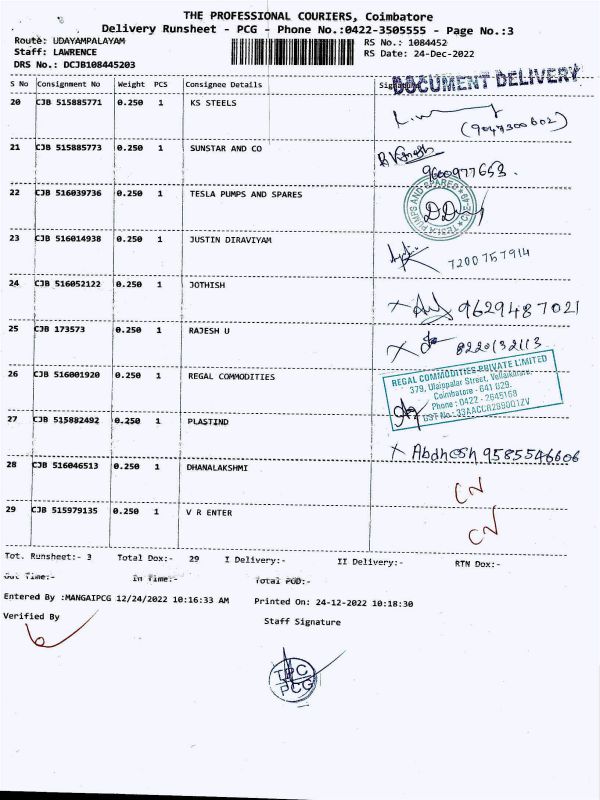 THE PROFESSIONAL COURIERS, Coimbatore
Delivery Runsheet - PCG - Phone No.:0422-3505555 - Page No.:3
Route: UDAYAMPALAYAM
RS No.: 1084452
Staff: LAWRENCE
RS Date: 24-Dec-2022
DRS No.: DCJB108445203
DOCUMENT DELIVERY
S No Consignment No Weight PCS Consignee Details
20 CJB 515885771 0.250 1 KS STEELS
(9047300602)
21 CJB 515885773 0.250 1 SUNSTAR AND CO
9600977653.
22 CJB 516039736 0.250 1 TESLA PUMPS AND SPARES
TESLA PUMPS AND SPARES
23 CJB 516014938 0.250 1 JUSTIN DIRAVIYAM
7200757914
24 CJB 516052122 0.250 1 JOTHISH
9629487021
25 CJB 173573 0.250 1 RAJESH U
8220132113
26 CJB 516001920 0.250 1 REGAL COMMODITIES
REGAL COMMODITIES PRIVATE LIMITED
379, Ulaippalar Street,
Coimbatore - 641 029.
Phone : 0422 - 2645168
27 CJB 515882492 0.250 1 PLASTIND
X Abdhesh 9585546606
28 CJB 516046513 0.250 1 DHANALAKSHMI
CN
29 CJB 515979135 0.250 1 V R ENTER
CN
Tot. Runsheet:- 3 Total Dox:- 29 I Delivery:- II Delivery:- RTN Dox:-
Out Time:- In Time:- Total POD:-
Entered By :MANGAIPCG 12/24/2022 10:16:33 AM Printed On: 24-12-2022 10:18:30
Verified By
Staff Signature
TPC
PCG